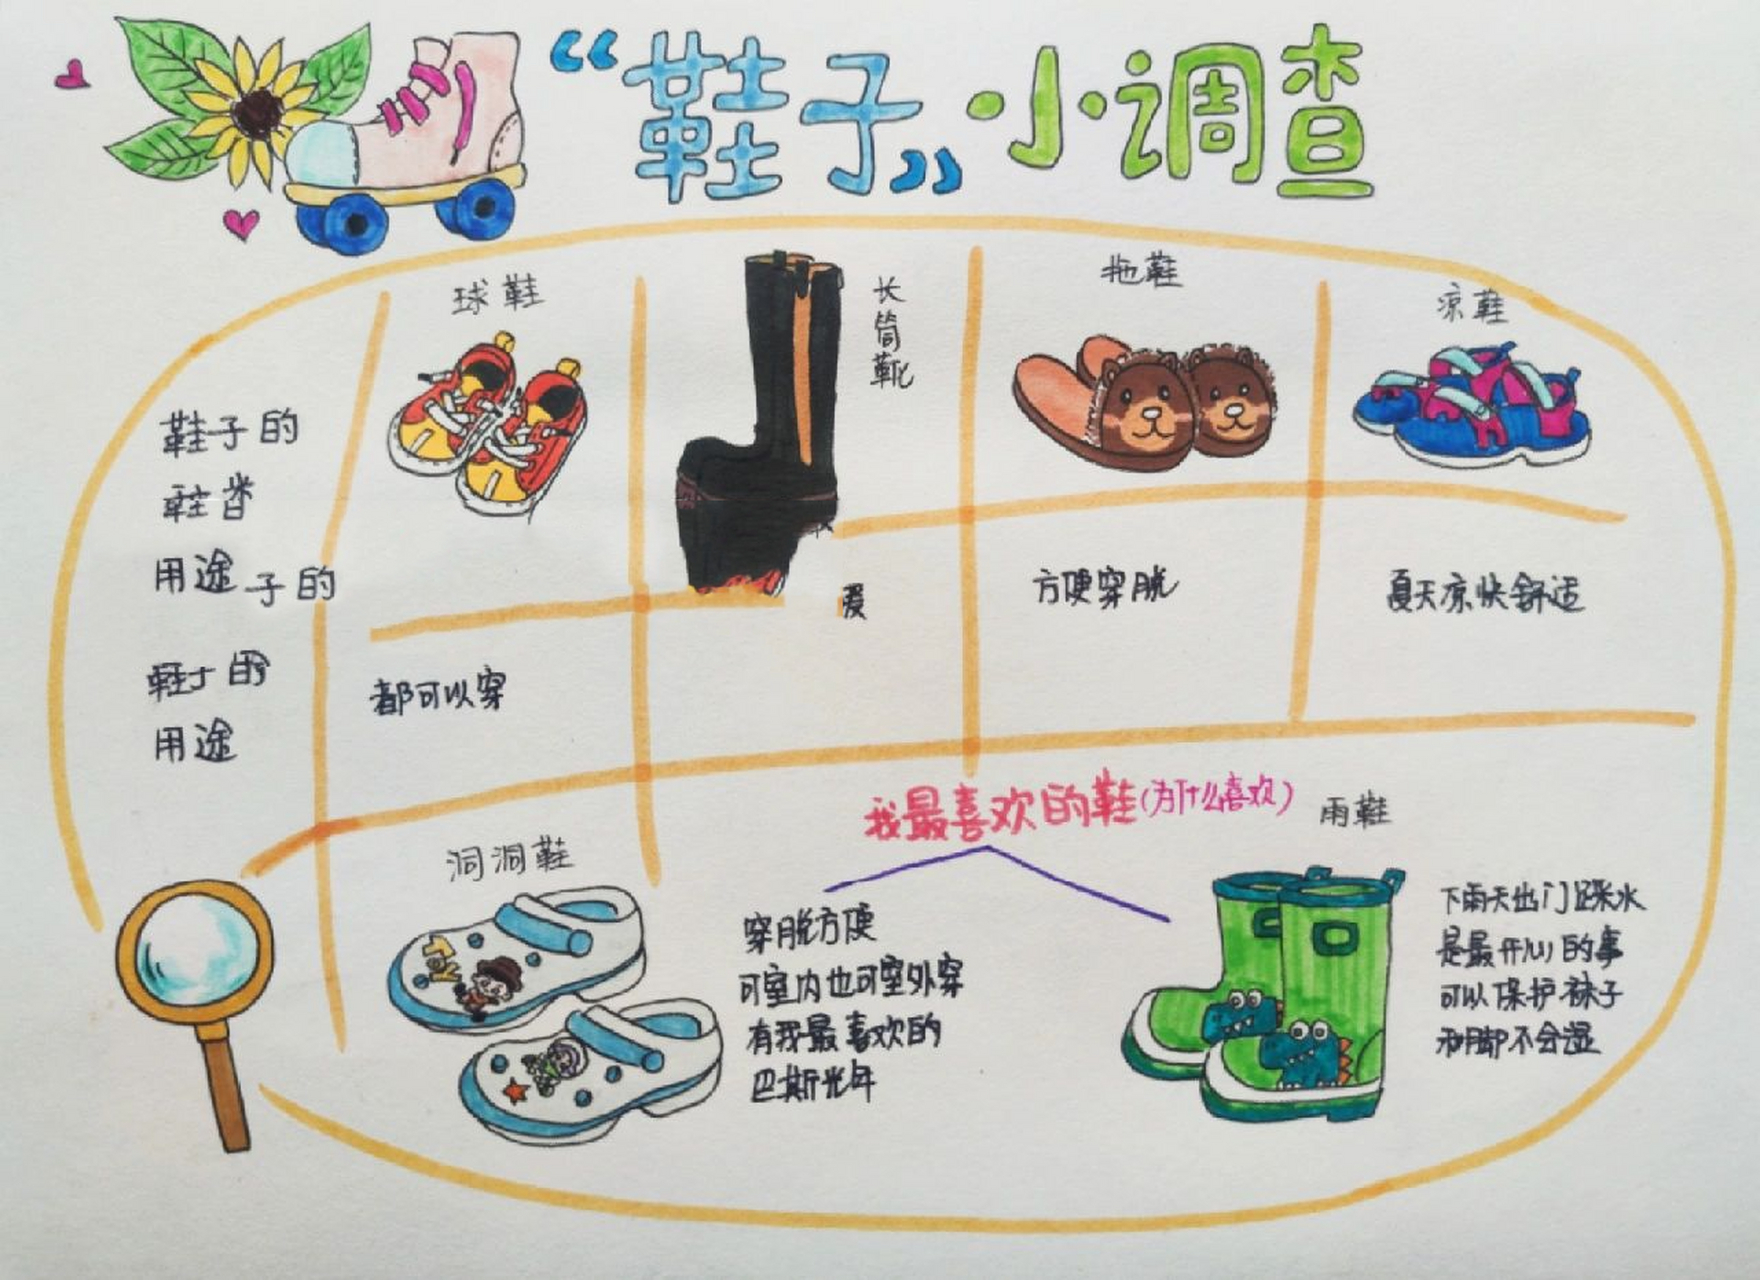 “鞋子”小调查
球鞋
长筒靴
拖鞋
凉鞋
鞋子的
用途子的
的
用途
都可以穿
爱
方便穿脱
夏天凉快舒适
我最喜欢的鞋(为什么喜欢)
洞洞鞋
穿脱方便
可室内也可室外穿
有我最喜欢的
巴斯光年
雨鞋
下雨天出门踩水
是最开心的事
可以保护袜子
和脚不会湿